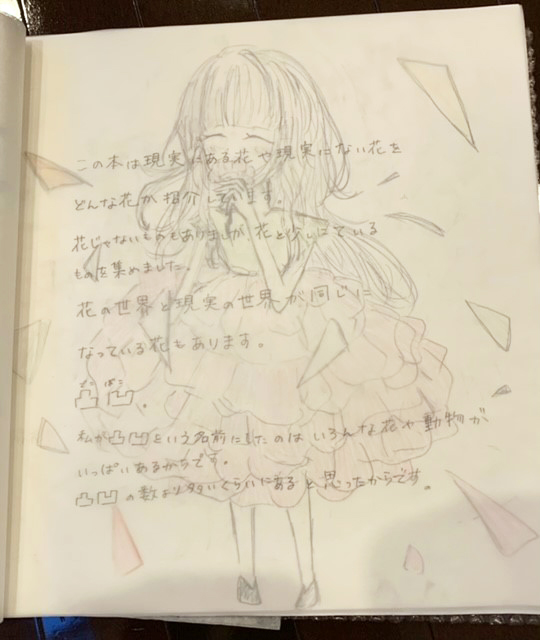 この本は現実にある花や現実にない花を
どんな花か紹介しています。
花じゃないものもありますが、花と似ている
ものを集めました。
花の世界と現実の世界が同じに
なっている花もあります。
でこ ぼこ
凸凹。
私が凸凹という名前にしたのは いろんな花や動物が
いっぱいあるからです。
凸凹の数より多いくらいにあると思ったからです。